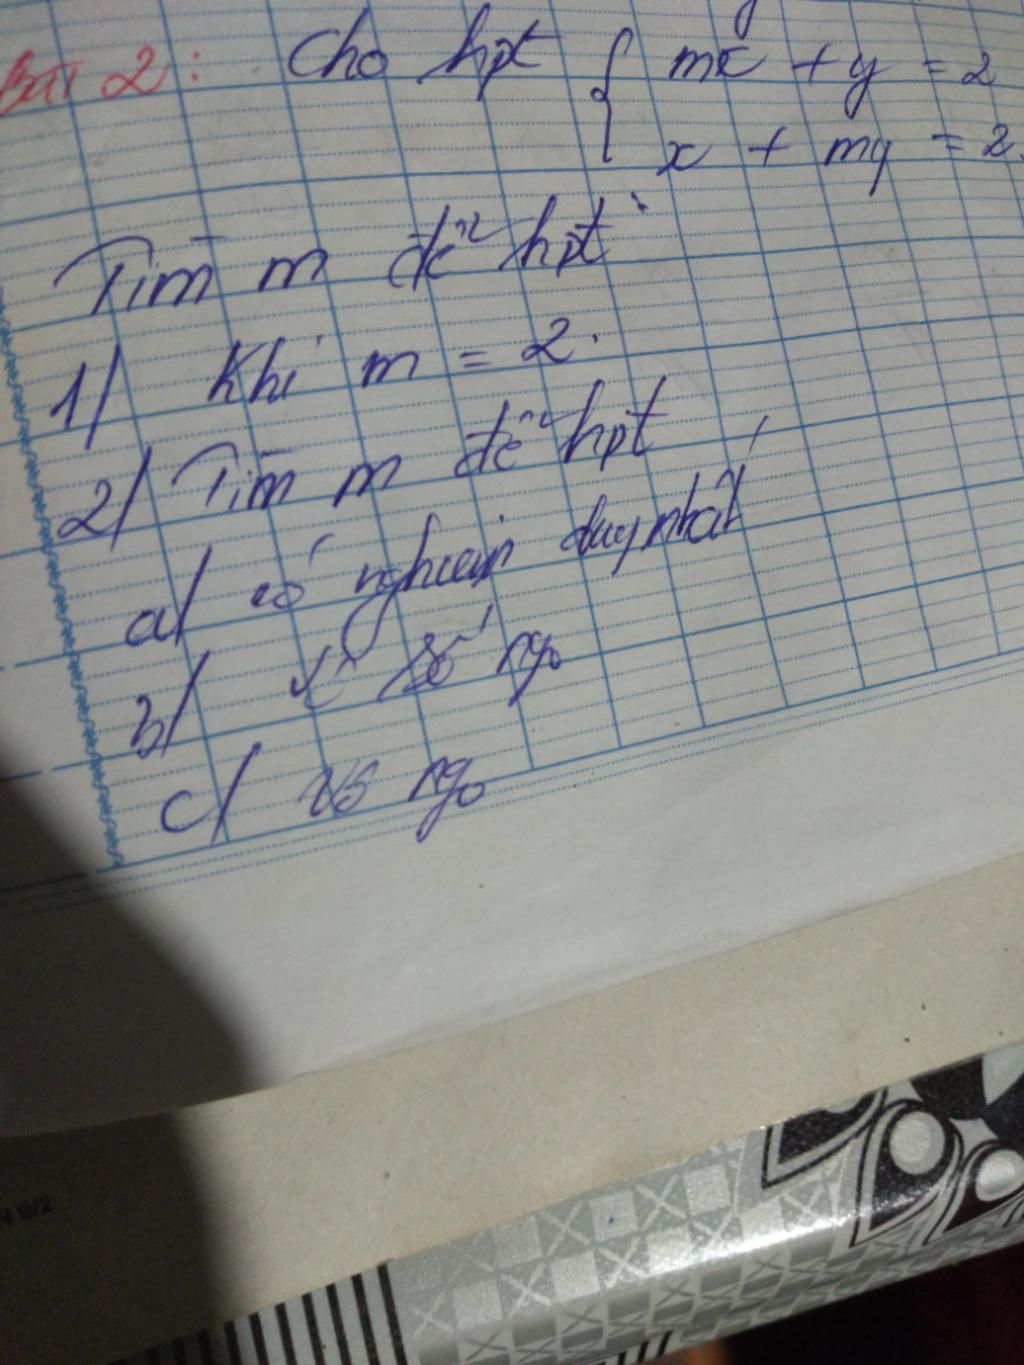 Bài 2: Cho hpt { mx + y = 2
x + my = 2.
Tìm m để hpt
1/ Khi m = 2.
2/ Tìm m để hpt
a/ có nghiệm duy nhất
b/ số ngo
c/ vô ngo
N 9/2